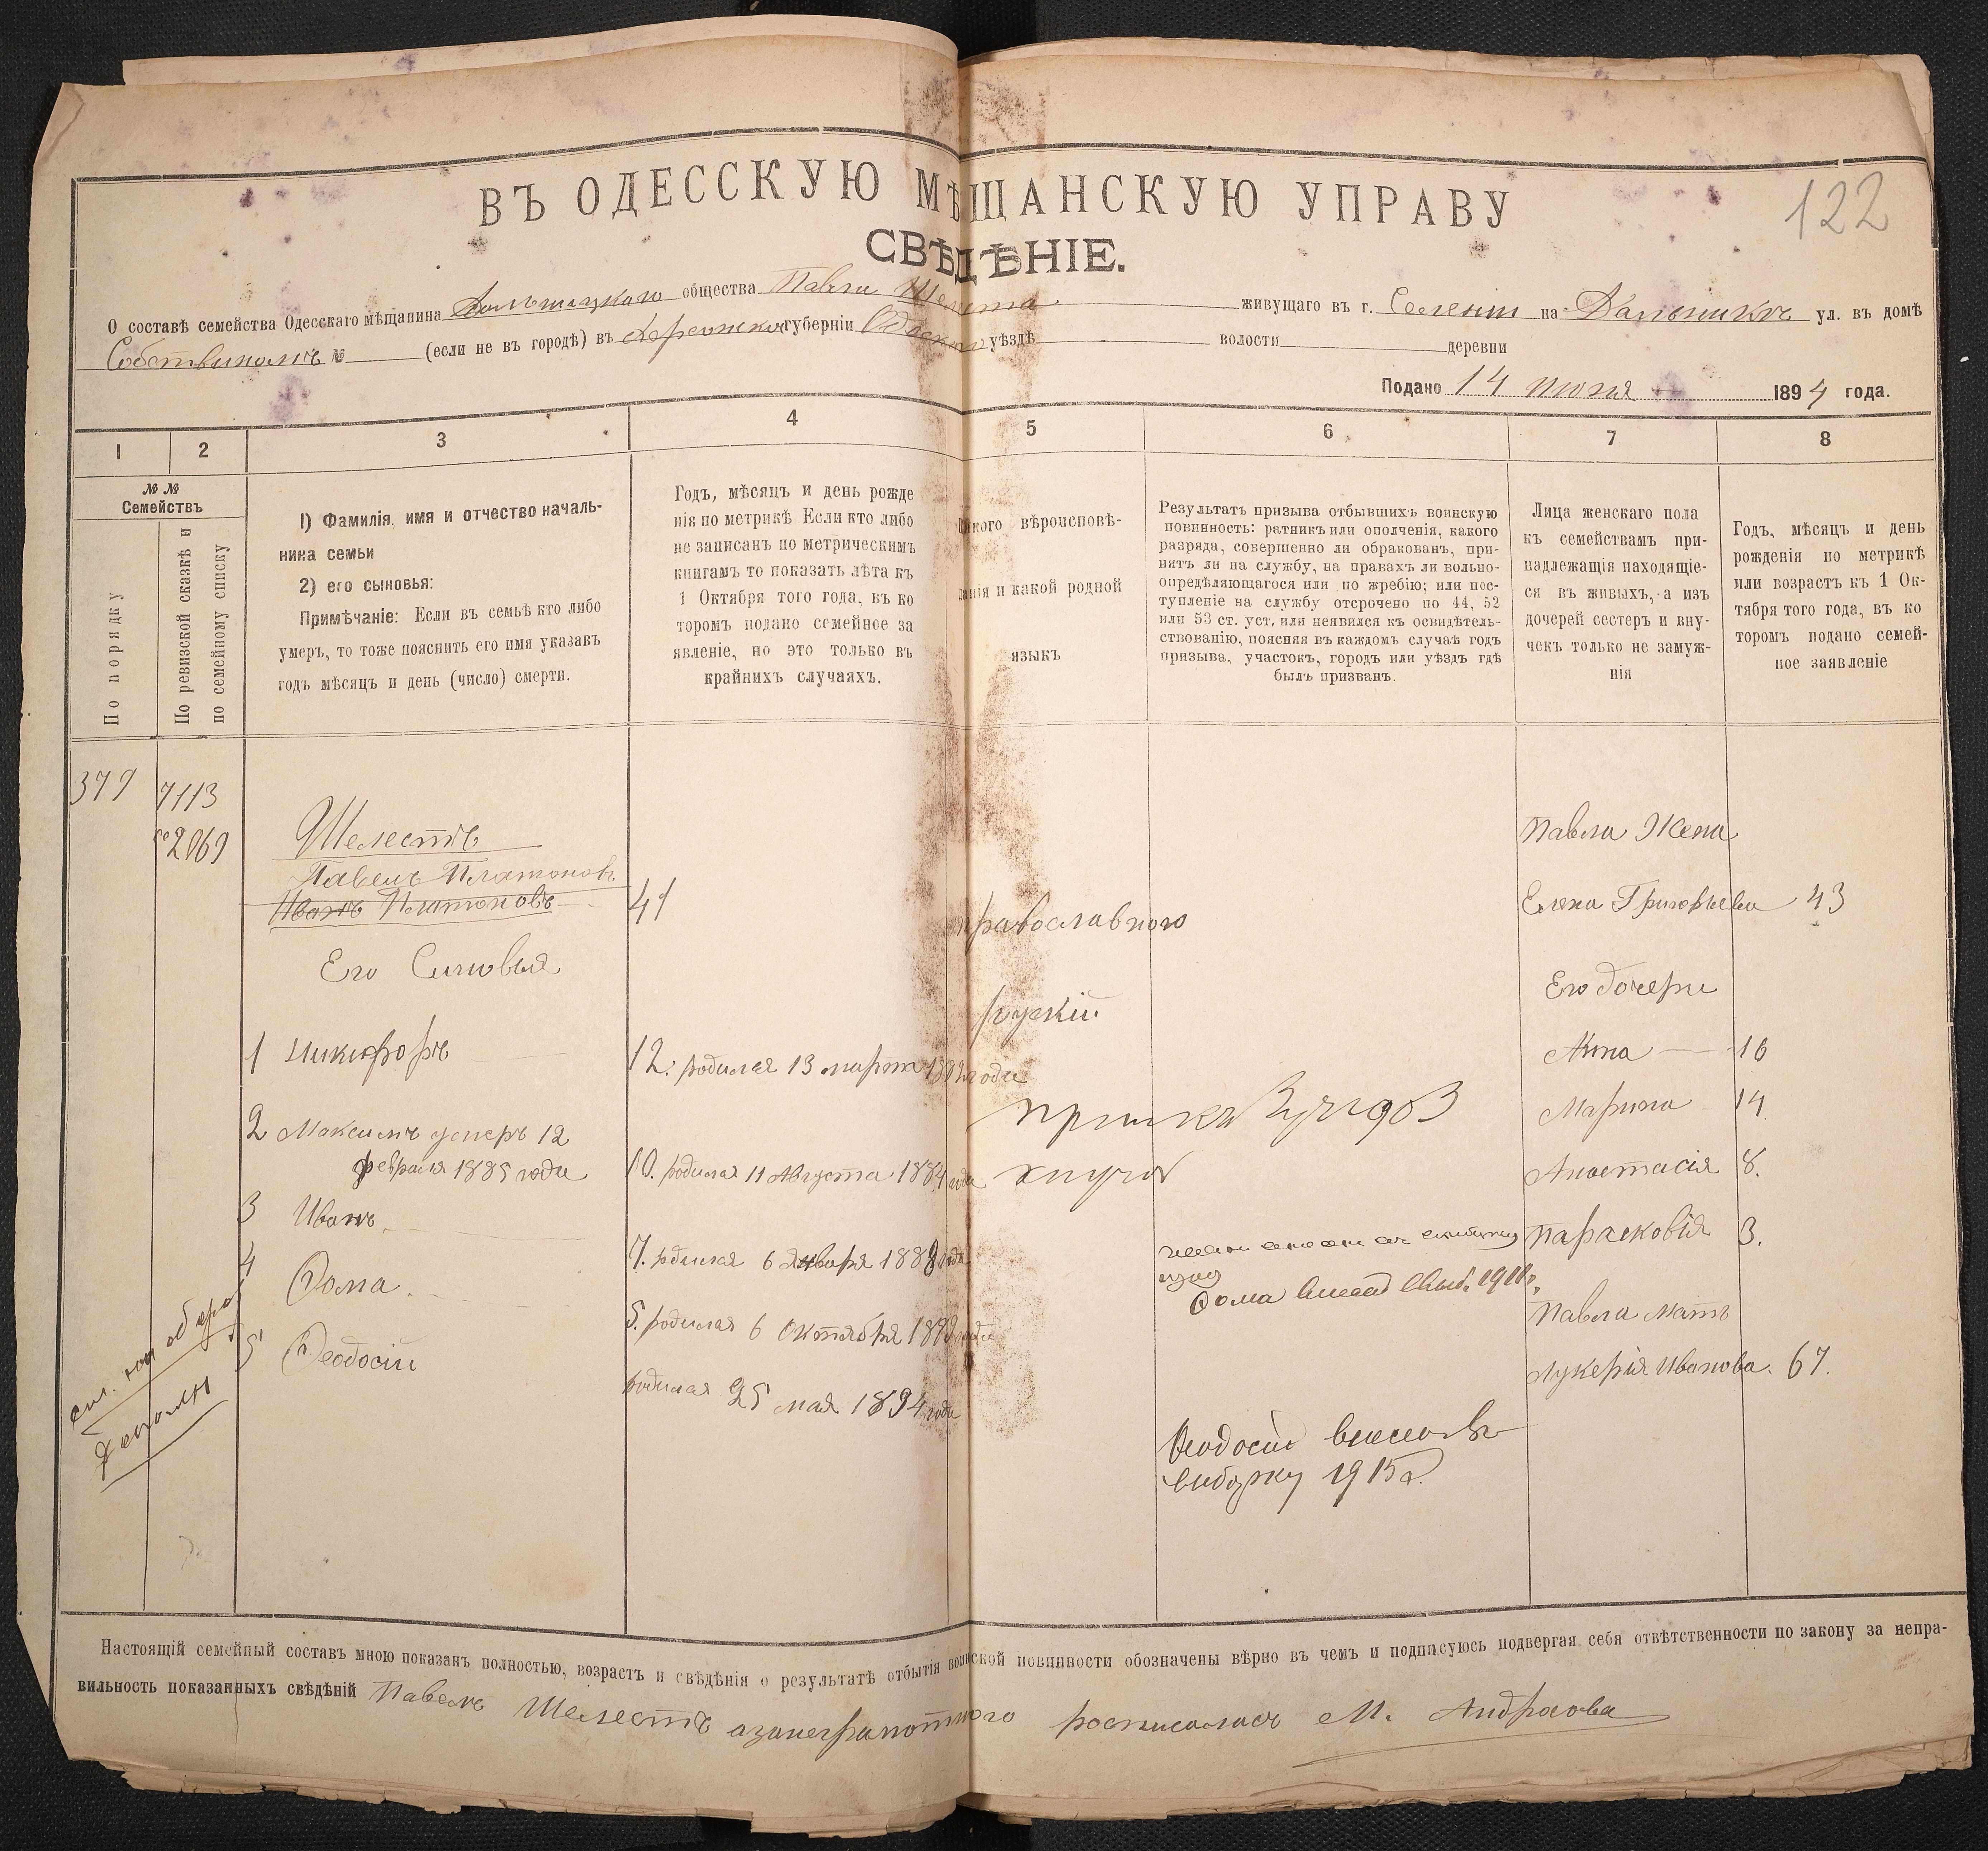 122
ВЪ ОДЕССКУЮ МѢЩАНСКУЮ УПРАВУ
СВѢДѢНІЕ.
О составѣ семейства Одесскаго мѣщанина общества Павла Шелеста живущаго въ г. Селеніи на Дальникъ ул. въ домѣ
Собственномъ № (если не въ городѣ) въ Херсонской губерніи Одескаго уѣздѣ волости деревни
Подано 14 Июня 1894 года.
1 2 3 4 5 6 7 8
№ №
Семействъ
По порядку
По ревизской сказкѣ и
по семейному списку
1) Фамилія, имя и отчество началь-
ника семьи
2) его сыновья:
Примѣчаніе: Если въ семьѣ кто либо
умеръ, то тоже пояснить его имя указавъ
годъ мѣсяцъ и день (число) смерти.
Годъ, мѣсяцъ и день рожде
нія по метрикѣ Если кто либо
не записанъ по метрическимъ
книгамъ то показать лѣта къ
1 Октября того года, въ ко
торомъ подано семейное за
явленіе, но это только въ
крайнихъ случаяхъ.
Какого вѣроисповѣ-
данія и какой родной
языкъ
Результатъ призыва отбывшихъ воинскую
повинность: ратникъ или ополченія, какого
разряда, совершенно ли обракованъ, при-
нятъ ли на службу, на правахъ ли вольно-
опредѣляющагося или по жребію; или пос-
тупленіе на службу отсрочено по 44, 52
или 53 ст. уст. или неявился къ освидѣтель-
ствованію, поясняя въ каждомъ случаѣ годъ
призыва, участокъ, городъ или уѣздъ гдѣ
былъ призванъ.
Лица женскаго пола
къ семействамъ при-
надлежащія находящіе-
ся въ живыхъ, а изъ
дочерей сестеръ и вну-
чекъ только не замуж-
нія
Годъ, мѣсяцъ и день
рожденія по метрикѣ
или возрастъ къ 1 Ок-
тября того года, въ ко
торомъ подано семей-
ное заявленіе
379 7113
2069
Шелестъ
Павелъ Платоновъ
Иванъ Платоновъ 41
православного
Павла Жена
Елена Григорьева 43
Его Сыновья
рускій
Его дочери
1 Никифоръ 12. родился 13 марта года
Анна 16
2 Максимъ умеръ 12
февраля 1885 года 10. родился 11 Августа 1884 года
Марина 14
Анастасія 8.
3 Иванъ 7. родился 6 Января 1888 года
Парасковія 3.
4 Фома 5. родился 6 Октября
Фома 1911 г.
Павла мать
5 Феодосій родился 25 мая 1894 года
Лукерія Иванова. 67.
Феодосій внесенъ въ
выборку 1915 г.
Настоящій семейный составъ мною показанъ полностью, возрастъ и свѣдѣнія о результатѣ отбытія воинской повинности обозначены вѣрно въ чемъ и подписуюсь подвергая себя отвѣтственности по закону за непра-
вильность показанныхъ свѣдѣній Павелъ Шелестъ азанеграмотного росписалась М. Андреева